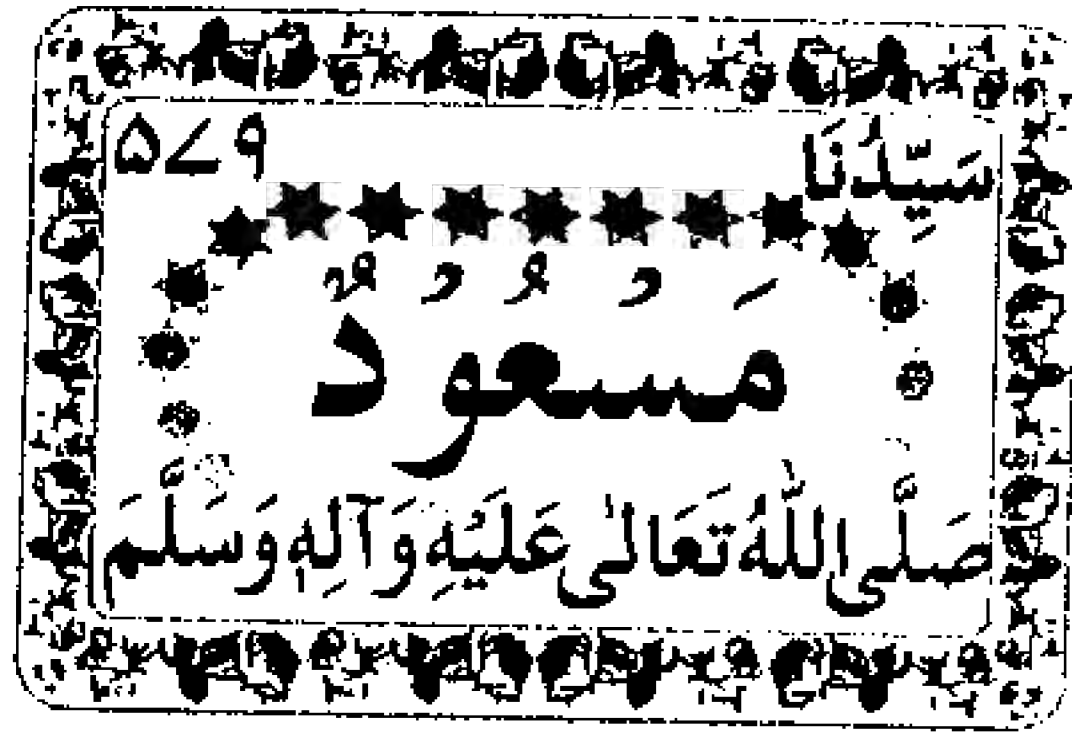 سَيِّدُنَا
۵۷۹
مَسْعُوْدٌ
صَلَّى اللّٰهُ تَعَالٰى عَلَيْهِ وَآلِهٖ وَسَلَّمَ